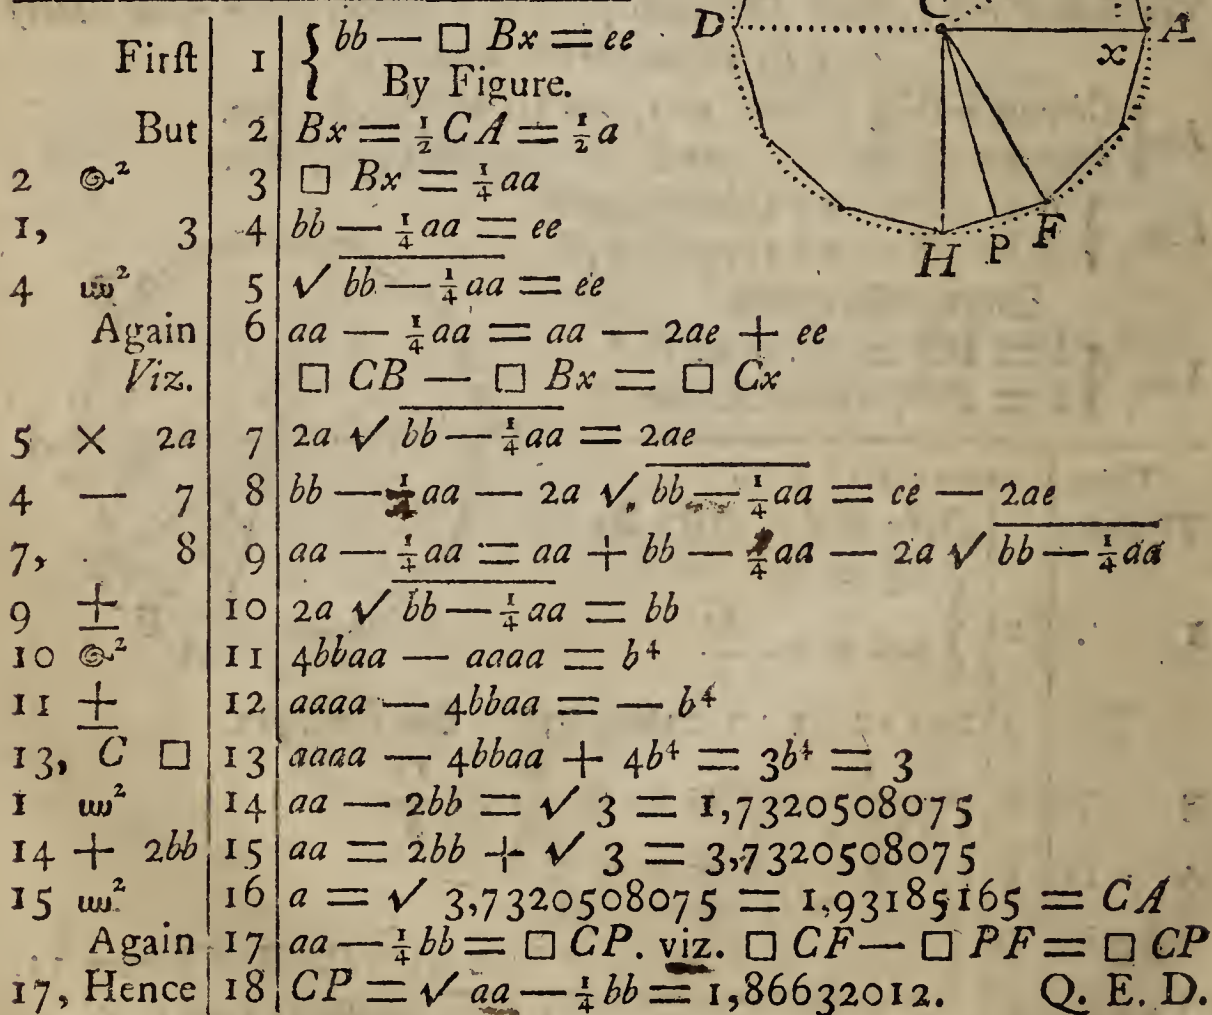 C
D A
x
H P F
Firſt | 1 | { bb — □ Bx = ee
By Figure.
But | 2 | Bx = ½ CA = ½ a
2 @² | 3 | □ Bx = ¼ aa
1, 3 | 4 | bb — ¼ aa = ee
4 ɯ² | 5 | √ bb — ¼ aa = ee
Again | 6 | aa — ¼ aa = aa — 2ae + ee
Viz. | □ CB — □ Bx = □ Cx
5 × 2a | 7 | 2a √ bb — ¼ aa = 2ae
4 — 7 | 8 | bb — ¼ aa — 2a √ bb — ¼ aa = ee — 2ae
7, 8 | 9 | aa — ¼ aa = aa + bb — ¼ aa — 2a √ bb — ¼ aa
9 ± | 10 | 2a √ bb — ¼ aa = bb
10 @² | 11 | 4bbaa — aaaa = b⁴
11 ± | 12 | aaaa — 4bbaa = — b⁴
13, C □ | 13 | aaaa — 4bbaa + 4b⁴ = 3b⁴ = 3
1 ɯ² | 14 | aa — 2bb = √ 3 = 1,7320508075
14 + 2bb | 15 | aa = 2bb + √ 3 = 3,7320508075
15 ɯ² | 16 | a = √ 3,7320508075 = 1,93185165 = CA
Again | 17 | aa — ¼ bb = □ CP. viz. □ CF — □ PF = □ CP
17, Hence | 18 | CP = √ aa — ¼ bb = 1,86632012. Q. E. D.